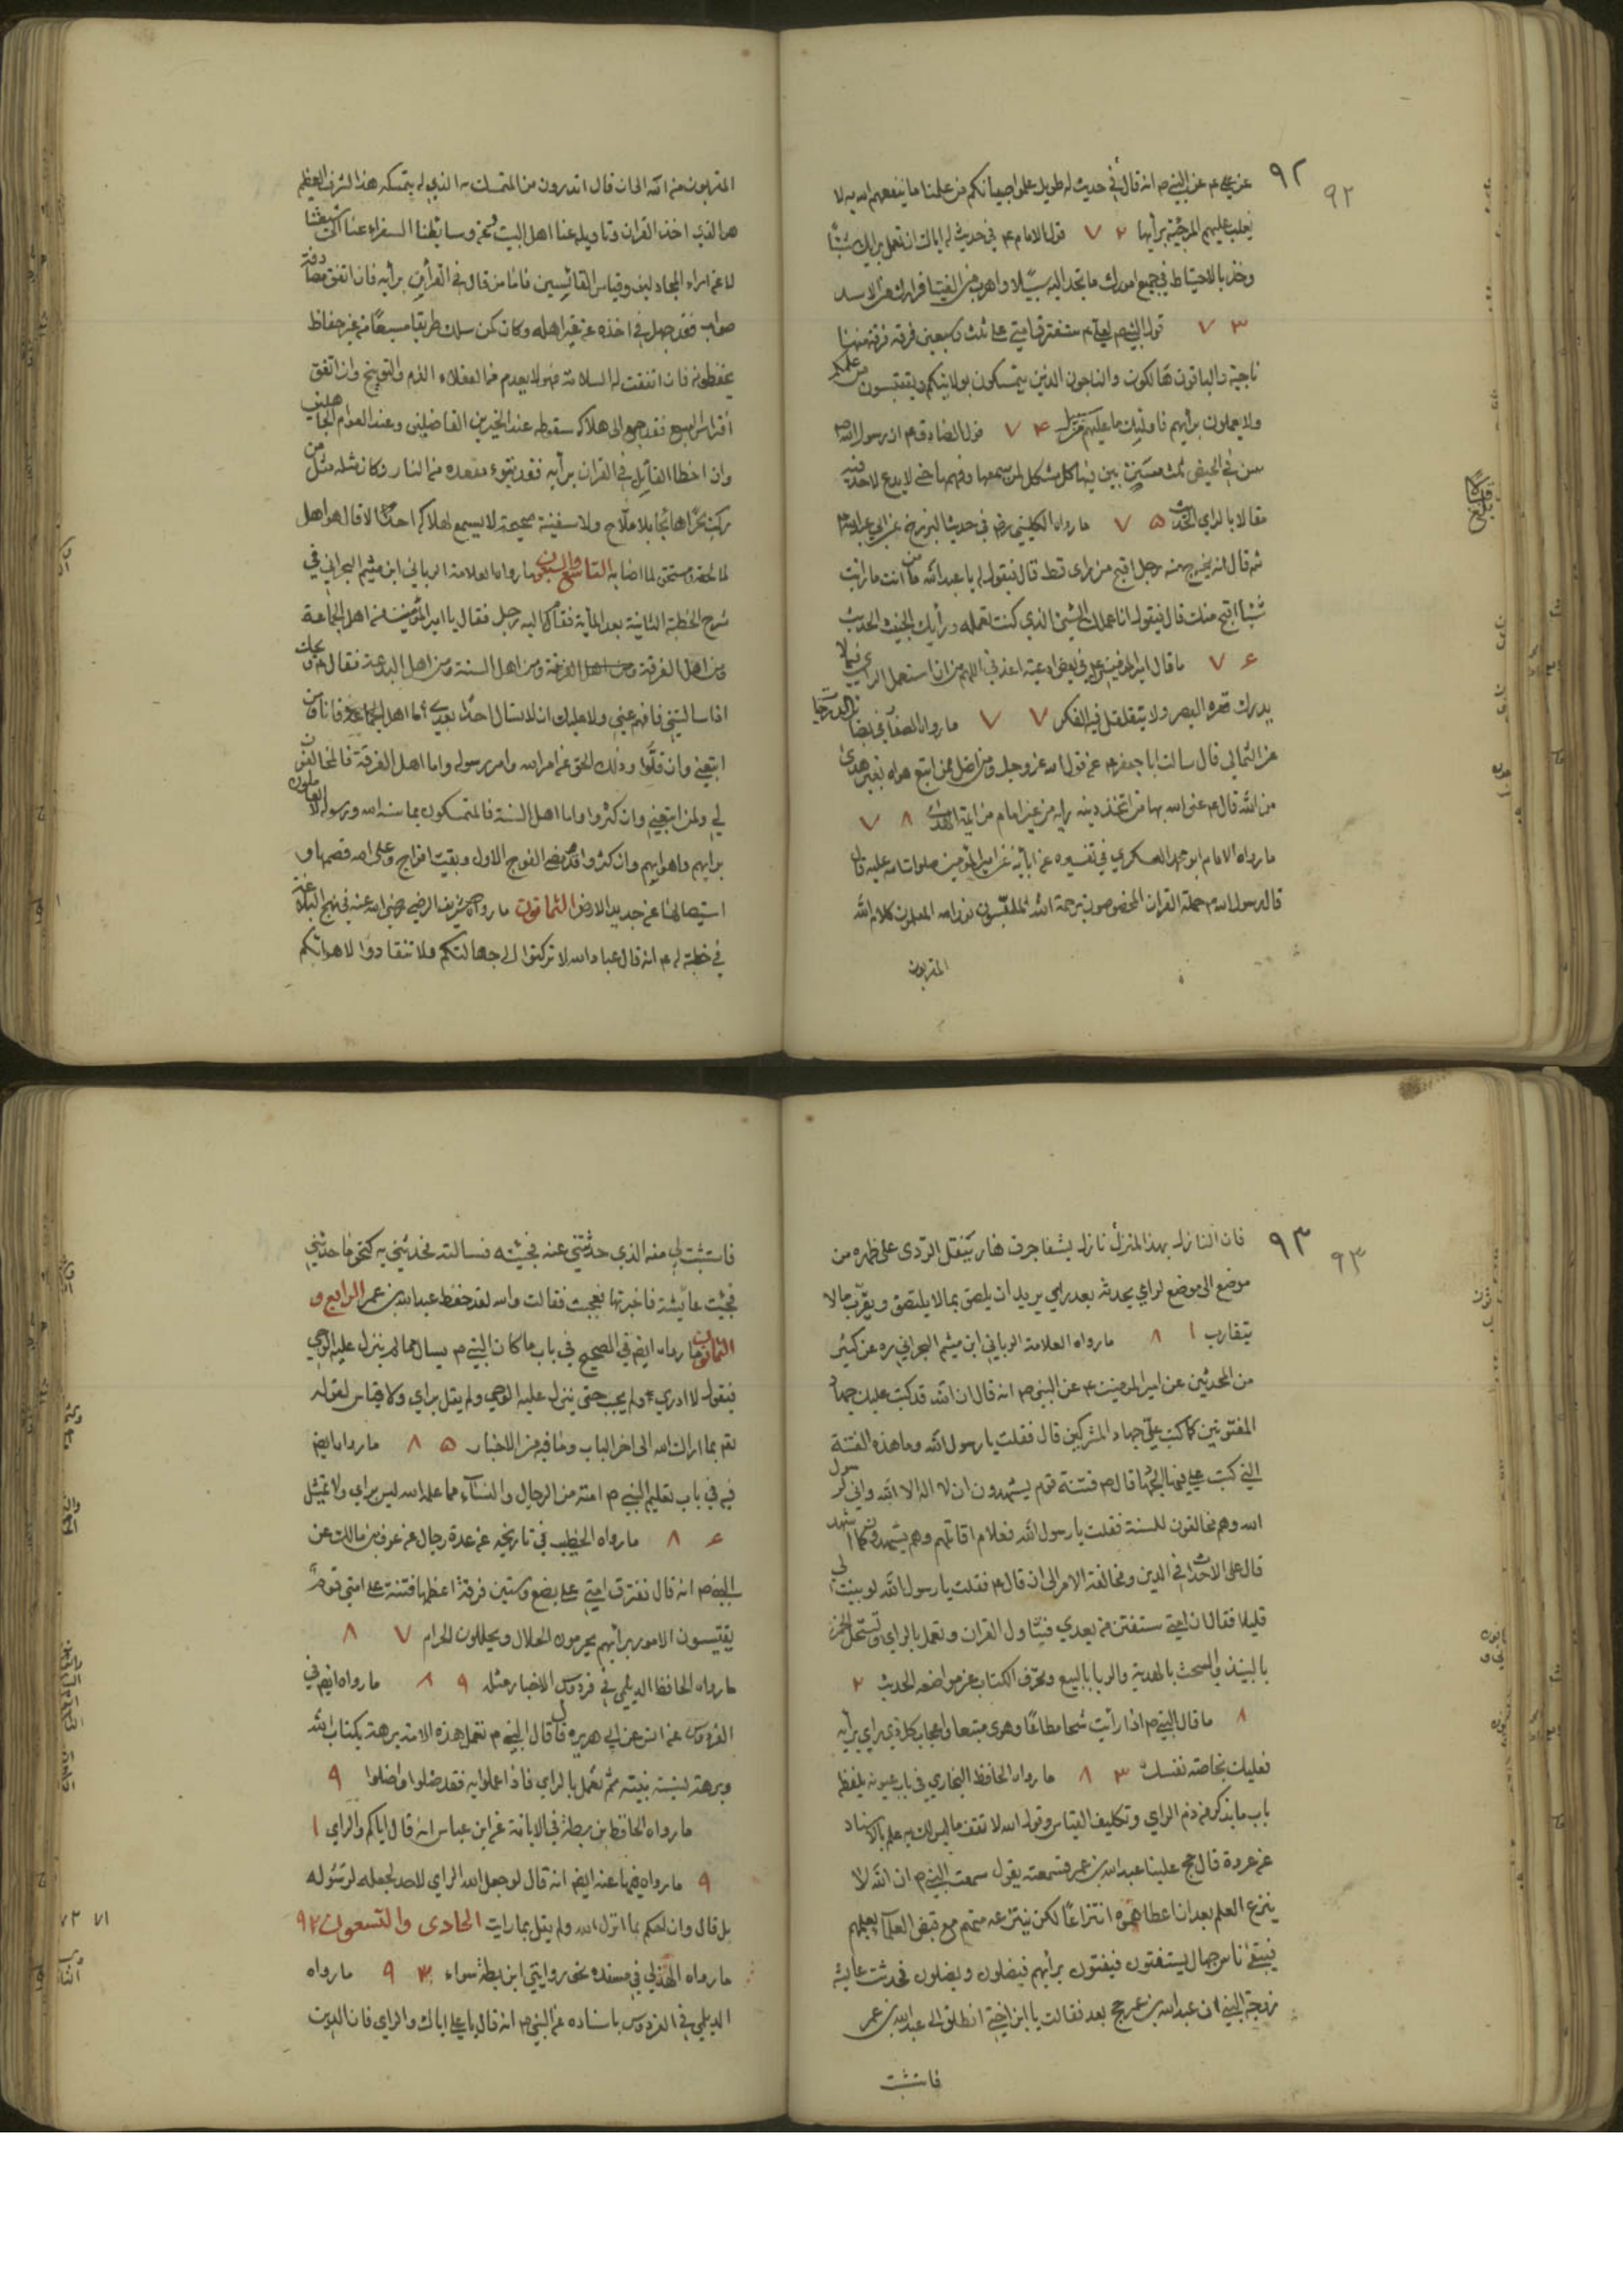 ٩٢
٩٢
عن علي ع عن النبي ص انه قال في حديث له طويل علموا صبيانكم من علمنا ما ينفعهم الله به لا
يغلب عليهم المرجئة برأيها ٧٢ قول الامام ع في حديث له اياك ان تعمل برايك شيئا
وخذ بالاحتياط في جميع امورك ما تجد اليه سبيلا واهرب من الفتيا فرارك من الاسد
٧٣ قول النبي ص لعلي ع ستفترق امتي على ثلث وسبعين فرقة فرقة منها
ناجية والباقون هالكون والناجون الذين يتمسكون بولايتكم ويقتبسون من علمكم
ولا يعملون برأيهم فاولئك ما عليهم من سبيل ٧٤ قول الصادق ع ان رسول الله ص
سن في الحيض ثلث سنن بين فيها كل مشكل لمن سمعها وفهمها حتى لا يدع لاحد فيه
مقالا بالراي الحديث ٧٥ ما رواه الكليني في حديث البرزخ عن ابي عبد الله ع
ثم قال انه يخرج منه رجل اقبح من راى قط قال فيقول له يا عبد الله من انت ما رايت
شيئا اقبح منك قال فيقول انا عملك السيئ الذي كنت تعمله ورأيك الخبيث الحديث
٧٦ ما قال امير المؤمنين ع في بعض ادعيته اعذني اللهم من ان استعمل الراي فيما لا
يدرك قعره البصر ولا يتغلغل فيه الفكر ٧٧ ما رواه الصفار في بصائر الدرجات
عن الثمالي قال سالت ابا جعفر ع عن قول الله عز وجل ومن اضل ممن اتبع هواه بغير هدى
من الله قال ع عنى الله بها من اتخذ دينه رايه من غير امام من ائمة الهدى ٧٨
ما رواه الامام ابو محمد العسكري في تفسيره عن ابائه عن امير المؤمنين صلوات الله عليه قال
قال رسول الله ص حملة القران المخصوصون برحمة الله الملبسون نور الله المعلمون كلام الله
المقربون
المقربون من الله الى ان قال اتدرون من المتمسك به الذي له بتمسكه هذا الشرف العظيم
هو الذي اخذ القران وتاويله عنا اهل البيت وعن وسائطنا السفراء عنا الى شيعتنا
لا عن اراء المجادلين وقياس القائسين فاما من قال في القرأن برأيه فان اتفق مصادفة
صواب فقد جهل في اخذه عن غير اهله وكان كمن سلك طريقا مسبعا من غير حفاظ
يحفظونه فان اتفقت له السلامة فهو لا يعدم من العقلاء الذم والتوبيخ وان اتفق
افتراس السبع فقد جمع الى هلاكه سقوطه عند الخيرين الفاضلين وعند العوام الجاهلين
وان اخطا القائل في القران برأيه فقد تبوء مقعده من النار وكان مثله مثل من
ركب بحرا هائجا بلا ملاح ولا سفينة صحيحة لا يسمع لهلاكه احد الا قال هو اهل
لما لحقه ومستحق لما اصابه التاسع والسبعون ما رواه العلامة الرباني ابن ميثم البحراني في
شرح الخطبة الثانية بعد المأية فقام اليه رجل فقال يا امير المؤمنين من اهل الجماعة
ومن اهل الفرقة ومن اهل السنة ومن اهل البدعة فقال ع ويحك
اما اذا سالتني فافهم عني ولا عليك ان لا تسال احدا بعدي اما اهل الجماعة فانا ومن
اتبعني وان قلوا وذلك الحق عن امر الله وامر رسوله واما اهل الفرقة فالمخالفون
لي ولمن اتبعني وان كثروا واما اهل السنة فالمتمسكون بما سنه الله ورسوله لا العاملون
برايهم واهوائهم وان كثروا وقد مضى الفوج الاول وبقيت افواج وعلى الله قصمها و
استيصالها عن جديد الارض الثمانون ما رواه الشريف الرضي رضي الله عنه في نهج البلاغة
في خطبة له ع انه قال عباد الله لا تركنوا الى جهالتكم ولا تنقادوا لاهوائكم
٩٣
٩٣
فان النازل بهذا المنزل نازل بشفا جرف هار ينقل الردى على ظهره من
موضع الى موضع لراي يحدثه بعد راي يريد ان يلصق بما لا يلتصق ويقرب ما لا
يتقارب ٨١ ما رواه العلامة الرباني ابن ميثم البحراني ره عن كثير
من المحدثين عن امير المومنين ع عن النبي ص انه قال ان الله قد كتب عليك جهاد
المفتونين كما كتب علي جهاد المشركين قال فقلت يا رسول الله وما هذه الفتنة
التي كتب علي فيها الجهاد قال ص فتنة قوم يشهدون ان لا اله الا الله واني رسول
الله وهم مخالفون للسنة فقلت يا رسول الله فعلام اقاتلهم وهم يشهدون كما اشهد
قال على الاحداث في الدين ومخالفة الامر الى ان قال ع فقلت يا رسول الله لو بينت لي
قليلا فقال ان امتي ستفتن من بعدي فيتاول القران وتعمل بالراي وتستحل الخمر
بالنبيذ والسحت بالهدية والربا بالبيع وتحرف الكتاب عن مواضعه الحديث ٢
٨ ما قال النبي ص اذا رأيت شحا مطاعا وهوى متبعا واعجاب كل ذي راي برأيه
فعليك بخاصة نفسك ٨٣ ما رواه الحافظ البخاري في باب عنونه بلفظ
باب ما يذكر من ذم الراي وتكليف القياس وقول الله لا تقف ما ليس لك به علم بالاسناد
عن عروة قال حج علينا عبد الله بن عمر فسمعته يقول سمعت النبي ص ان الله لا
ينزع العلم بعد ان اعطاهموه انتزاعا لكن ينتزعه منهم مع قبض العلماء بعلمهم
فيبقى ناس جهال يستفتون فيفتون برأيهم فيضلون ويضلون فحدثت عايشة
زوجة النبي ان عبد الله بن عمر حج بعد فقالت يا ابن اختي انطلق الى عبد الله بن عمر
فاستثبت
فاستثبت لي منه الذي حدثتني عنه فجئته فسالته فحدثني به كنحو ما حدثني
فجئت عائشة فاخبرتها فعجبت فقالت والله لقد حفظ عبد الله بن عمر الرابع و
الثمانون ما رواه ايضا في الصحيح في باب ما كان النبي ص يسال مما لم ينزل عليه الوحي
فيقول لا ادري او لم يجب حتى ينزل عليه الوحي ولم يقل براي ولا قياس لقوله
تع بما اراك الله الى اخر الباب وما فيه من الاخبار ٨٥ ما رواه ايضا
فيه في باب تعليم النبي ص امته من الرجال والنساء مما علمه الله ليس براي ولا تمثيل
٨٦ ما رواه الخطيب في تاريخه عن عدة رجال عن عوف بن مالك عن
النبي ص انه قال تفترق امتي على بضع وستين فرقة اعظمها فتنة على امتي قوم
يقيسون الامور برأيهم يحرمون الحلال ويحللون الحرام ٨٧
ما رواه الحافظ الديلمي في فردوس الاخبار مثله ٨٩ ما رواه ايضا في
الفردوس عن انس عن ابي هريره قال قال النبي ص تعمل هذه الامة برهة بكتاب الله
وبرهة بسنة نبيه ثم تعمل بالراي فاذا عملوا به فقد ضلوا واضلوا ٩
ما رواه الحافظ بن بطة في الابانة عن ابن عباس انه قال اياكم والراي ١
٩ ما رواه فيها عنه ايضا انه قال لو جعل الله الراي لاحد لجعله لرسوله
بل قال وان احكم بما انزل الله ولم يقل بما رايت الحادى والتسعون ٩٢
ما رواه الهذلي في مسنده نحو روايتي ابن بطة سواء ٩٣ ما رواه
الديلمي في الفردوس باسناده عن النبي ص انه قال يا علي اياك والراي فان الدين